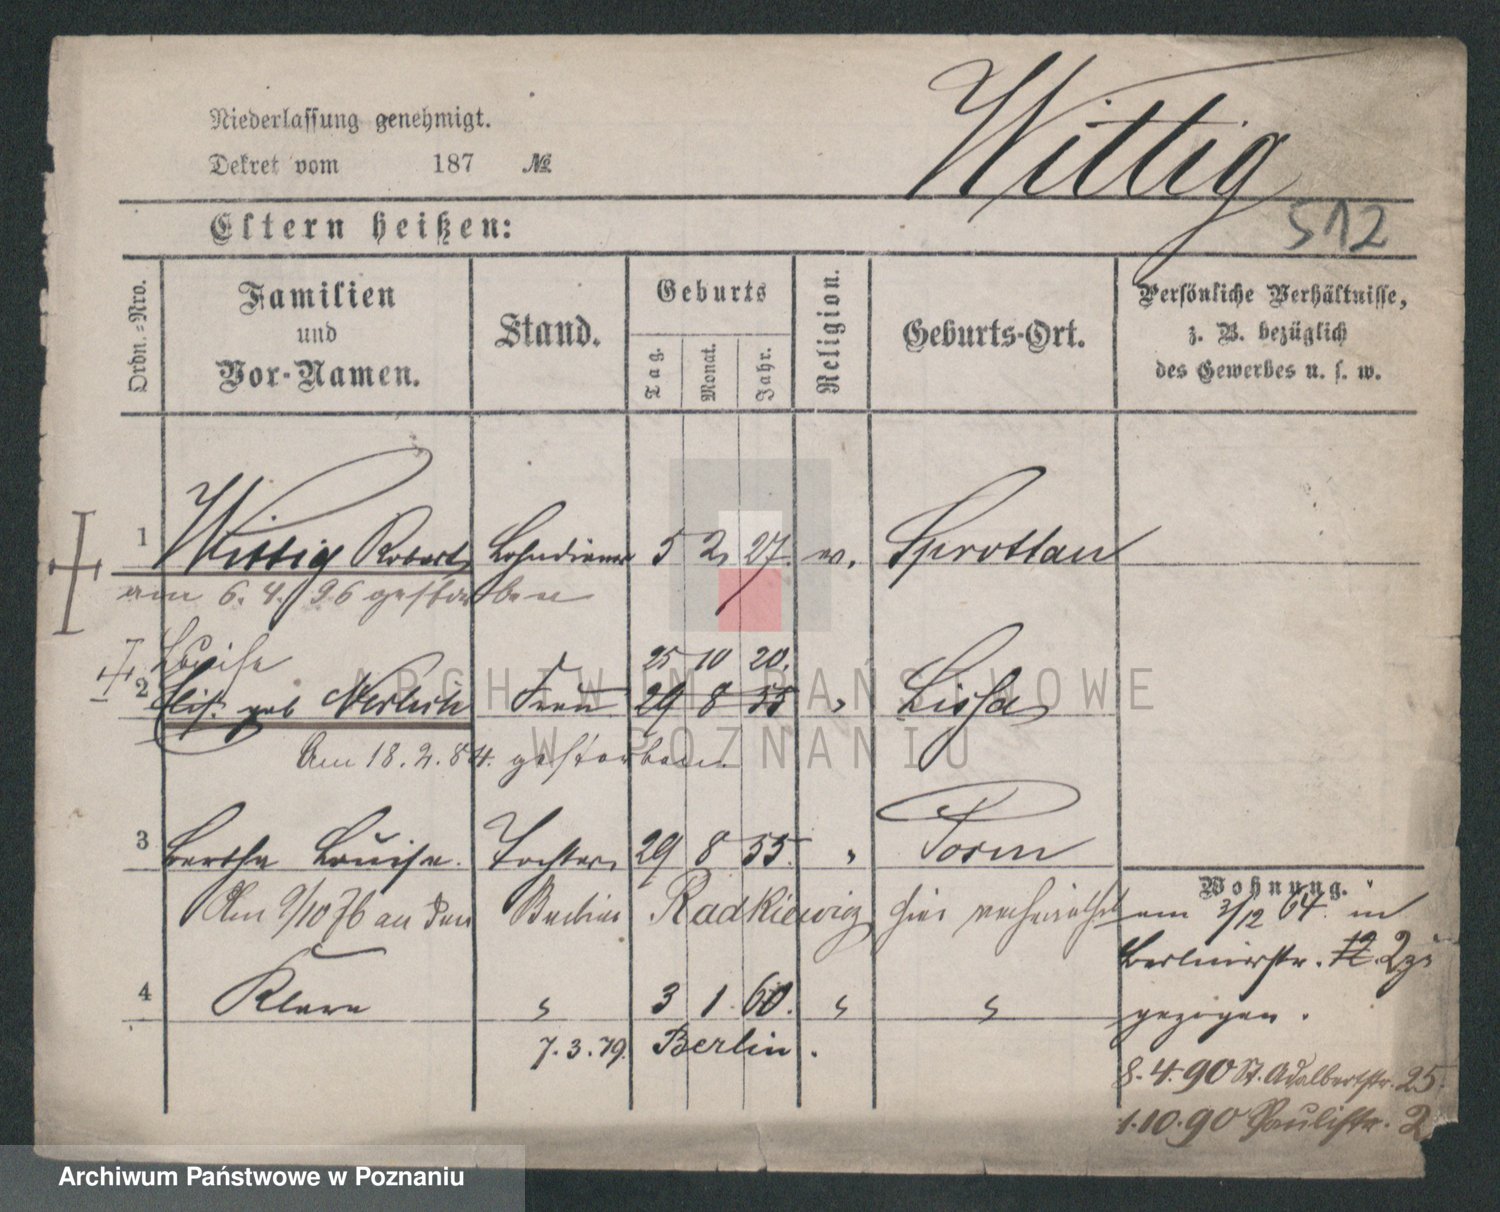 Niederlassung genehmigt.
Dekret vom 187 №
Wittig
512
Eltern heißen:
Ordn.-Nro.
Familien und Vor-Namen.
Stand.
Geburts
Tag. Monat. Jahr.
Religion.
Geburts-Ort.
Persönliche Verhältnisse,
z. B. bezüglich
des Gewerbes u. s. w.
1 Wittig Robert Lohndiener 5 2 27. ev. Sprottau
am 6. 4. 96 gestorben
Louise 25 10 20.
2 geb Frau 29 8 55 " Lissa
Am 18. 2. 84. gestorben.
3 Bertha Louise. Tochter 29 8 55. " Posen
Am 9/10 76 an den Radkiewicz hier verheirathet
Wohnung.
am 3/12 64. in
Berlinerstr. 12. 2
gezogen.
4 Klara " 3 1 60. " "
7. 3. 79. Berlin.
8. 4. 90 St. Adalbertstr. 25.
1. 10. 90 Paulistr. 2
ARCHIWUM PAŃSTWOWE
W POZNANIU
Archiwum Państwowe w Poznaniu